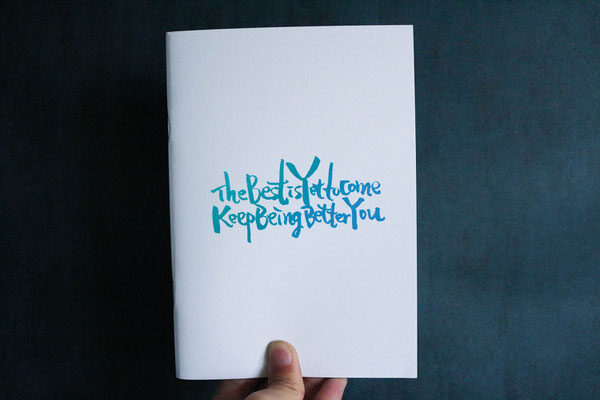 The Best is Yet to come
Keep Being Better You